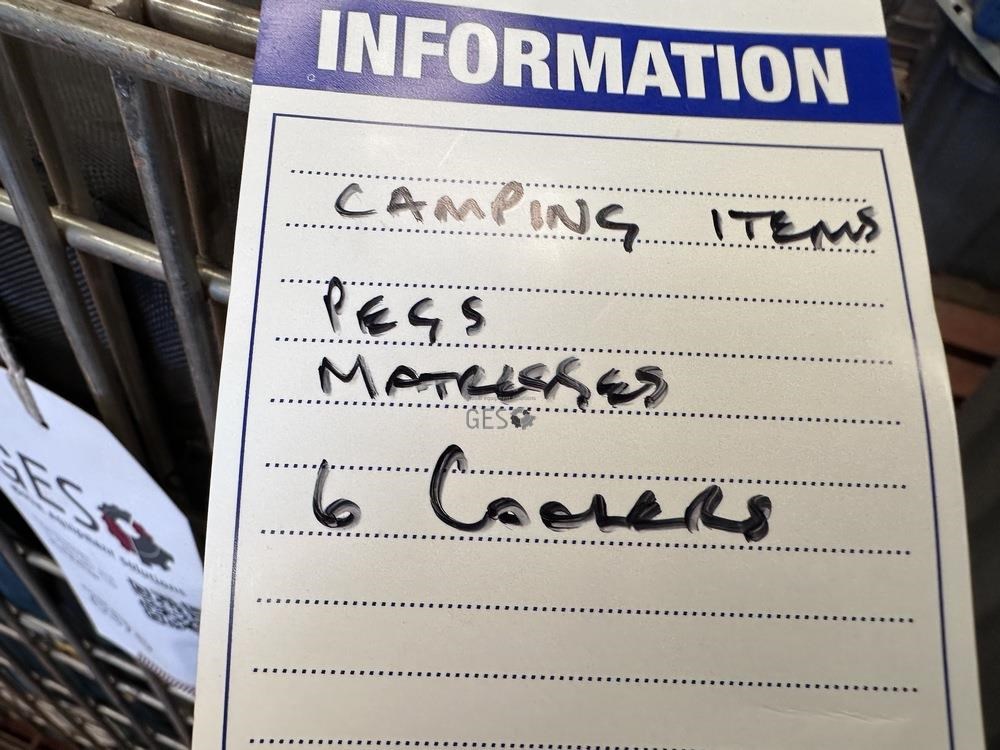 INFORMATION
CAMPING ITEMS
PEGS
MATRESSES
GES
6 COOLERS
GES
equipment solutions